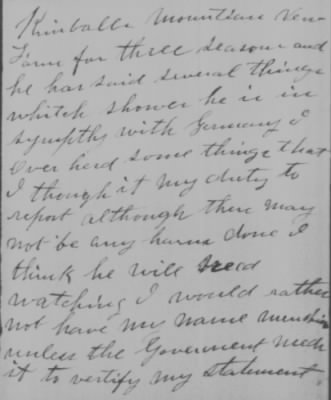 Kimballs Mountian View
Farm for three seasons and
he has said several things
whitch shower he is in
sympths with Germany I
over herd some things that
I though it my duty to
report although there may
not be any harm done I
think he will need
watching I would rather
not have my name mention
unless the Goverment needs
it to vertify my statement